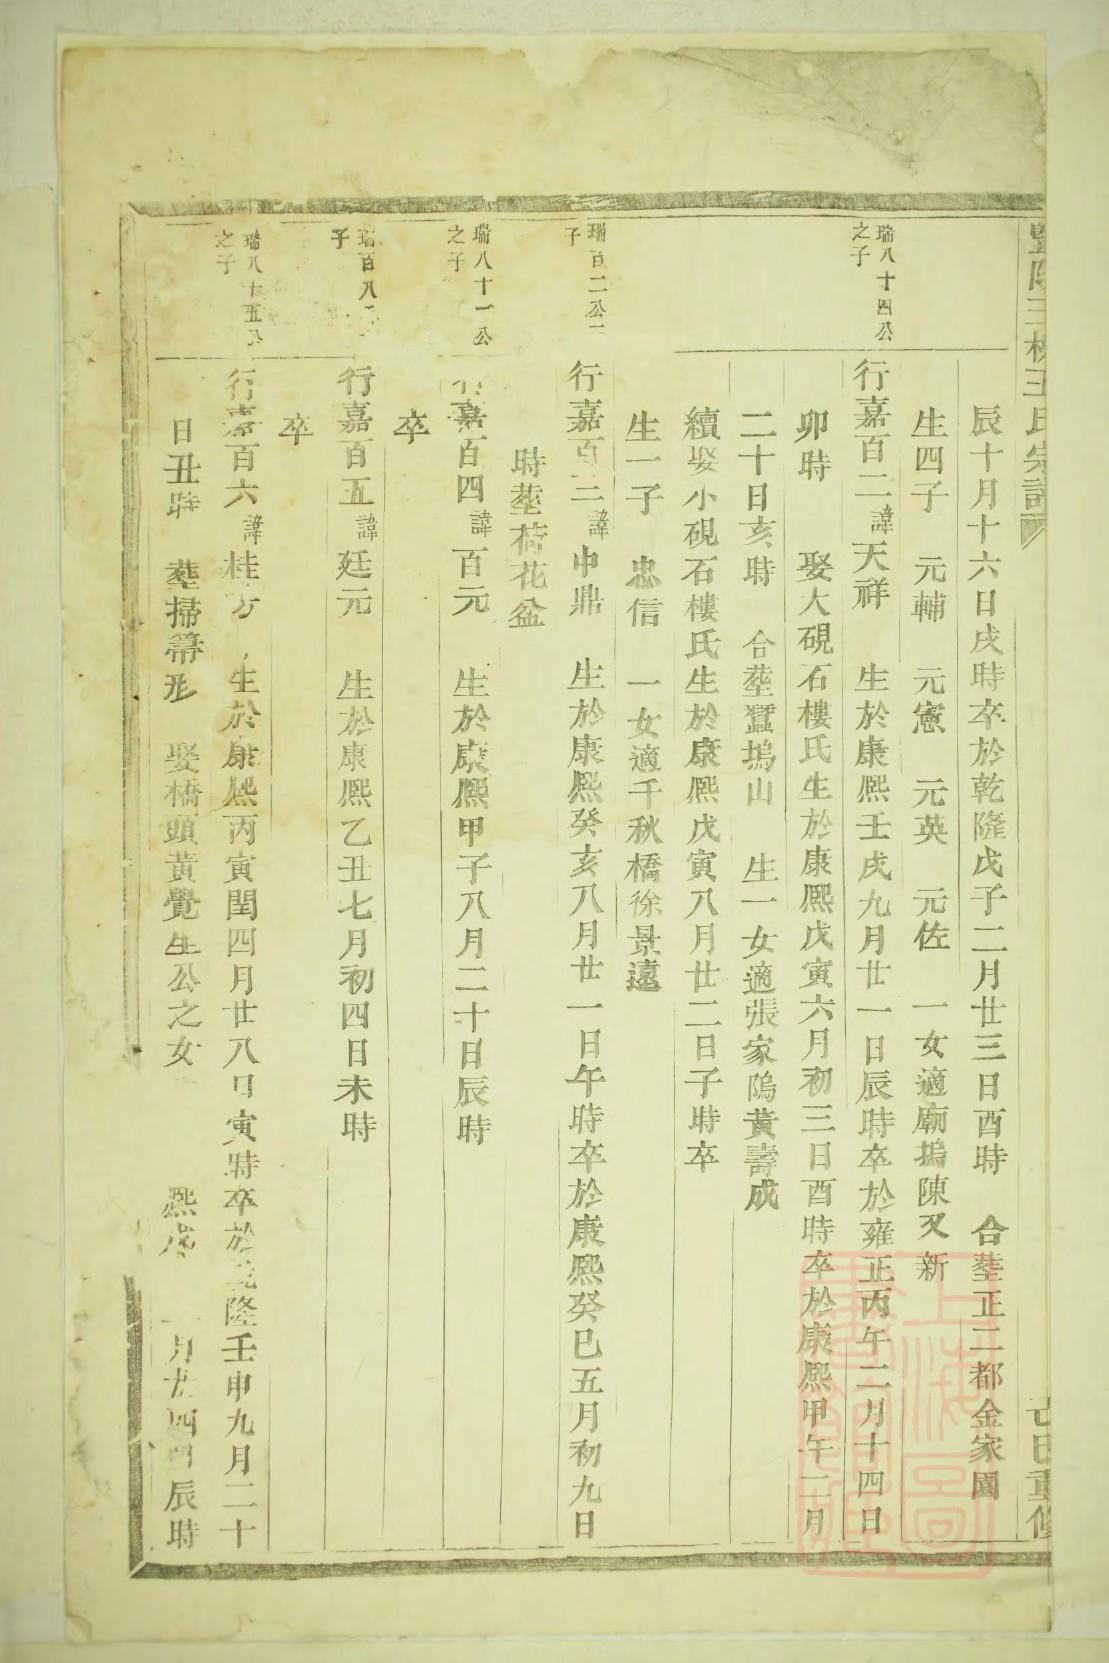 辰十月十六日戌時卒於乾隆戊子二月廿三日酉時 合塟正二都金家園
生四子 元輔 元憲 元英 元佐 一女適廟塢陳又新
瑞八十四公之子
行嘉百二諱天祥 生於康熙壬戌九月廿一日辰時卒於雍正丙午二月十四日
卯時 娶大硯石樓氏生於康熙戊寅六月初三日酉時卒於康熙甲午一月
二十日亥時 合塟蠶塢山 生一女適張家隖黃壽成
續娶小硯石樓氏生於康熙戊寅八月廿二日子時卒
生一子 忠信 一女適千秋橋徐景遠
瑞百二公子
行嘉百三諱中鼎 生於康熙癸亥八月廿一日午時卒於康熙癸巳五月初九日
時塟荷花盆
瑞八十一公之子
行嘉百四諱百元 生於康熙甲子八月二十日辰時
卒
瑞百八子
行嘉百五諱廷元 生於康熙乙丑七月初四日未時
卒
瑞八十五公之子
行嘉百六諱桂方 生於康熙丙寅閏四月廿八日寅時卒於乾隆壬申九月二十
日丑時 塟掃箒形 娶橋頭黃覺生公之女 熙 月廿四日辰時
王氏宗譜
重修
上海圖書館藏